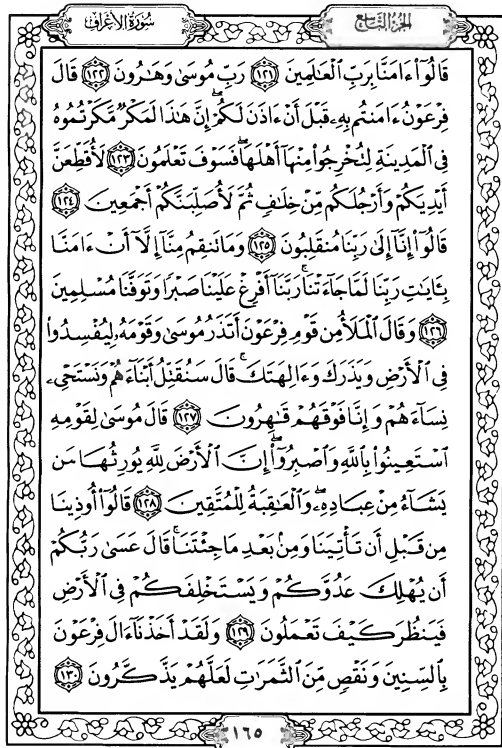 سُورَةُ الأَعْرَافِ
الجُزْءُ التَّاسِعُ
قَالُوٓاْ ءَامَنَّا بِرَبِّ ٱلْعَٰلَمِينَ ١٢١ رَبِّ مُوسَىٰ وَهَٰرُونَ ١٢٢ قَالَ
فِرْعَوْنُ ءَامَنتُم بِهِۦ قَبْلَ أَنْ ءَاذَنَ لَكُمْ ۖ إِنَّ هَٰذَا لَمَكْرٌ مَّكَرْتُمُوهُ
فِى ٱلْمَدِينَةِ لِتُخْرِجُواْ مِنْهَآ أَهْلَهَا ۖ فَسَوْفَ تَعْلَمُونَ ١٢٣ لَأُقَطِّعَنَّ
أَيْدِيَكُمْ وَأَرْجُلَكُم مِّنْ خِلَٰفٍ ثُمَّ لَأُصَلِّبَنَّكُمْ أَجْمَعِينَ ١٢٤
قَالُوٓاْ إِنَّآ إِلَىٰ رَبِّنَا مُنقَلِبُونَ ١٢٥ وَمَا تَنقِمُ مِنَّآ إِلَّآ أَنْ ءَامَنَّا
بِـَٔايَٰتِ رَبِّنَا لَمَّا جَآءَتْنَا ۚ رَبَّنَآ أَفْرِغْ عَلَيْنَا صَبْرًا وَتَوَفَّنَا مُسْلِمِينَ
١٢٦ وَقَالَ ٱلْمَلَأُ مِن قَوْمِ فِرْعَوْنَ أَتَذَرُ مُوسَىٰ وَقَوْمَهُۥ لِيُفْسِدُواْ
فِى ٱلْأَرْضِ وَيَذَرَكَ وَءَالِهَتَكَ ۚ قَالَ سَنُقَتِّلُ أَبْنَآءَهُمْ وَنَسْتَحْىِۦ
نِسَآءَهُمْ وَإِنَّا فَوْقَهُمْ قَٰهِرُونَ ١٢٧ قَالَ مُوسَىٰ لِقَوْمِهِ
ٱسْتَعِينُواْ بِٱللَّهِ وَٱصْبِرُوٓاْ ۖ إِنَّ ٱلْأَرْضَ لِلَّهِ يُورِثُهَا مَن
يَشَآءُ مِنْ عِبَادِهِۦ ۖ وَٱلْعَٰقِبَةُ لِلْمُتَّقِينَ ١٢٨ قَالُوٓاْ أُوذِينَا
مِن قَبْلِ أَن تَأْتِيَنَا وَمِنۢ بَعْدِ مَا جِئْتَنَا ۚ قَالَ عَسَىٰ رَبُّكُمْ
أَن يُهْلِكَ عَدُوَّكُمْ وَيَسْتَخْلِفَكُمْ فِى ٱلْأَرْضِ
فَيَنظُرَ كَيْفَ تَعْمَلُونَ ١٢٩ وَلَقَدْ أَخَذْنَآ ءَالَ فِرْعَوْنَ
بِٱلسِّنِينَ وَنَقْصٍ مِّنَ ٱلثَّمَرَٰتِ لَعَلَّهُمْ يَذَّكَّرُونَ ١٣٠
١٦٥